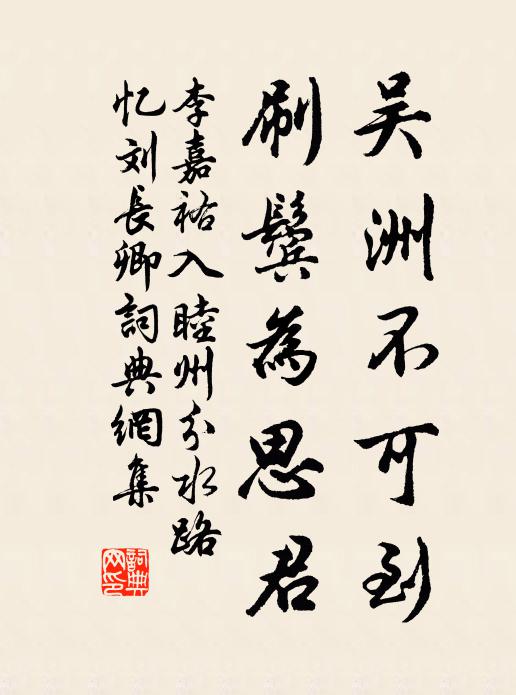 吴洲不可到
刷鬓為思君
李嘉祐入睦州分水路
忆刘長卿詞典網集
詞典
网印